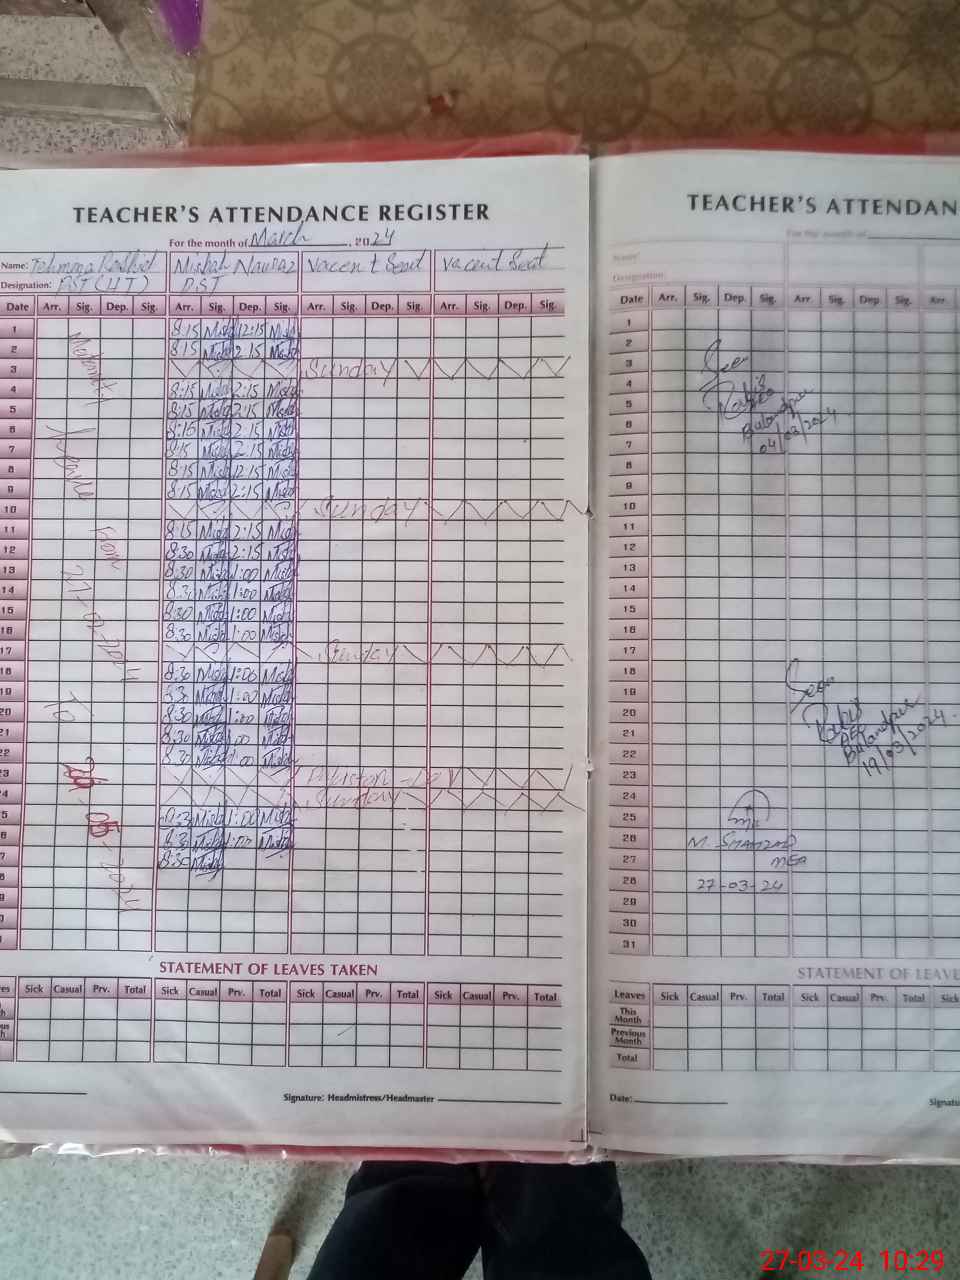 TEACHER'S ATTENDANCE REGISTER
For the month of March, 2024
Name: Misbah Nawaz Vacent Seat Vacent Seat
Designation: PST (HT) PST
Date Arr. Sig. Dep. Sig. Arr. Sig. Dep. Sig. Arr. Sig. Dep. Sig. Arr. Sig. Dep. Sig.
1 8:15 Misba 12:15 Misba
2 8:15 Misba 2:15 Misba
3 Sunday
4 8:15 Misba 2:15 Misba
5 8:15 Misba 2:15 Misba
6 8:15 Misba 2:15 Misba
7 8:15 Misba 2:15 Misba
8 8:15 Misba 12:15 Misba
9 8:15 Misba 2:15 Misba
10 Sunday
11 8:15 Misba 2:15 Misba
12 8:30 Misba 2:15 Misba
13 8:30 Misba 1:00 Misba
14 8:30 Misba 1:00 Misba
15 8:30 Misba 1:00 Misba
16 8:30 Misba 1:00 Misba
17 Sunday
18 8:30 Misba 1:00 Misba
19 8:30 Misba 1:00 Misba
20 8:30 Misba 1:00 Misba
21 8:30 Misba 1:00 Misba
22 8:30 Misba 1:00 Misba
23 Pakistan Day
24 Sunday
5 8:30 Misba 1:00 Misba
6 8:30 Misba 1:00 Misba
7 8:30 Misba
8
9
Maternity
From
27-02-2024
To
05-2024
STATEMENT OF LEAVES TAKEN
Sick Casual Prv. Total Sick Casual Prv. Total Sick Casual Prv. Total Sick Casual Prv. Total
Signature: Headmistress/Headmaster
TEACHER'S ATTENDAN
For the month of
Name:
Designation:
Date Arr. Sig. Dep. Sig. Arr. Sig. Dep. Sig. Arr.
1
2
3
4
5
6
7
8
9
10
11
12
13
14
15
16
17
18
19
20
21
22
23
24
25
26
27
28
29
30
31
Seen
Bulandpur
04/03/2024
Seen
Bulandpur
19/03/2024
M. SHAHZAD
MEA
27-03-24
STATEMENT OF LEAVE
Leaves Sick Casual Prv. Total Sick Casual Prv. Total Sick
This Month
Previous Month
Total
Date:
Signatu
27-03-24 10:29